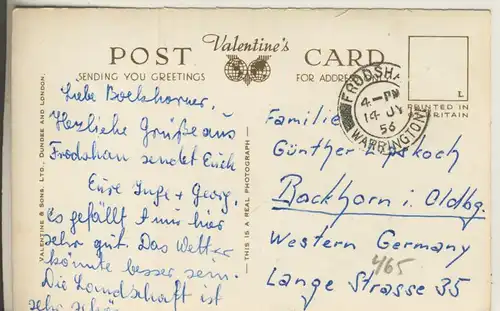 Valentine's
POST CARD
SENDING YOU GREETINGS
FOR ADDRESS
FRODSHA
4-PM
14 JY
56
WARRINGTON
L
PRINTED IN
BRITAIN
VALENTINE & SONS. LTD., DUNDEE AND LONDON.
THIS IS A REAL PHOTOGRAPH
Liebe
Herzliche Grüße aus
Frodshan sendet Euch
Eure Inge + Georg.
Es gefällt mir hier
sehr gut. Das Wetter
könnte besser sein.
Die Landschaft ist
sehr
Familie
Günther
Bockhorn i. Oldbg.
Western Germany
Lange Strasse 35
465